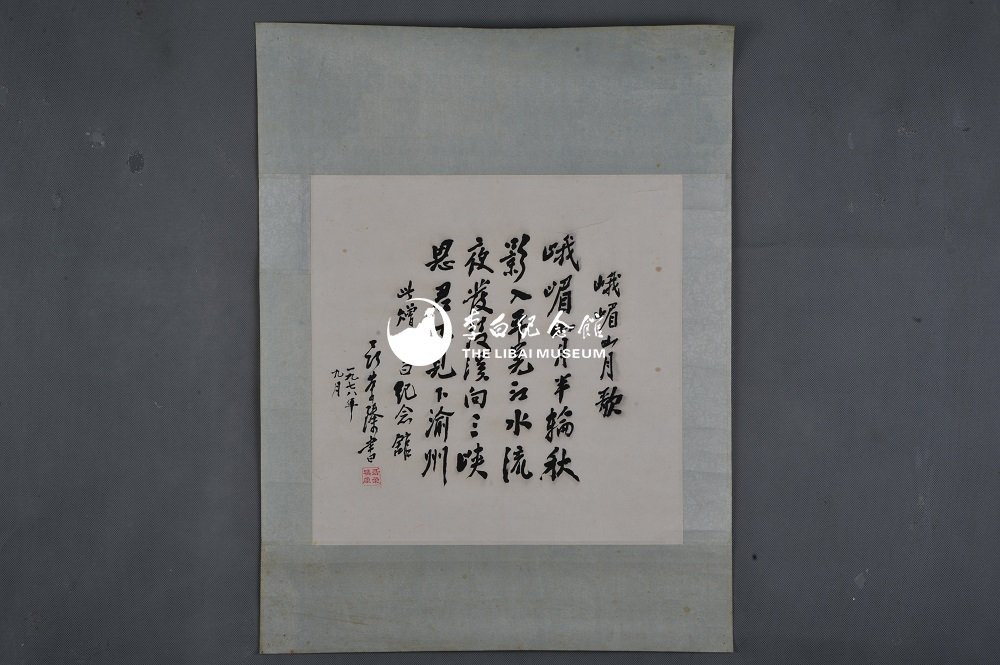 峨嵋山月歌
峨嵋山月半輪秋
影入平羌江水流
夜发清溪向三峡
思君不见下渝州
此赠 白纪念舘
書
一九七八年
九月
李白纪念館
THE LIBAI MUSEUM